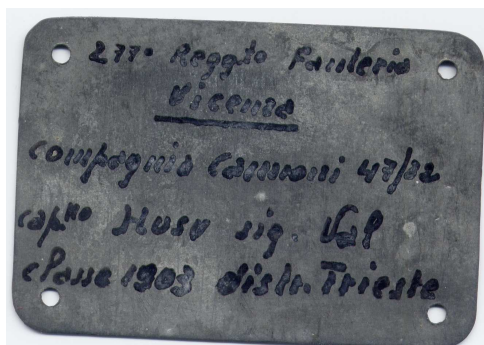 277° Reggto Fanteria
Vicenza
compagnia Cannoni 47/32
cap.no Husu sig. Val
classe 1903 distr. Trieste